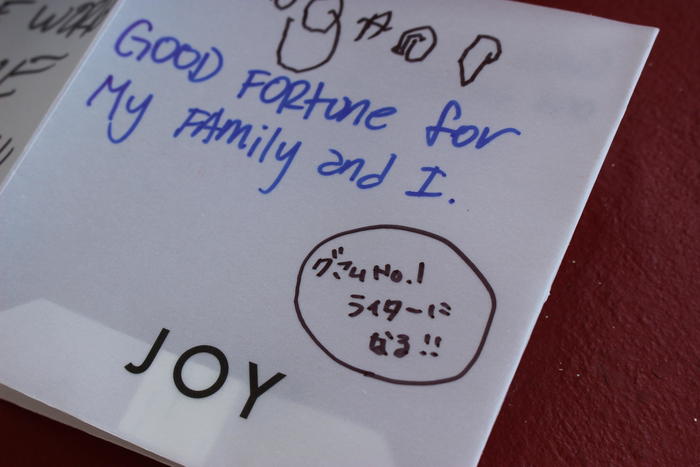 GOOD FORtune for
My FAmily and I.
グアムNo.1
ライターに
なる!!
JOY